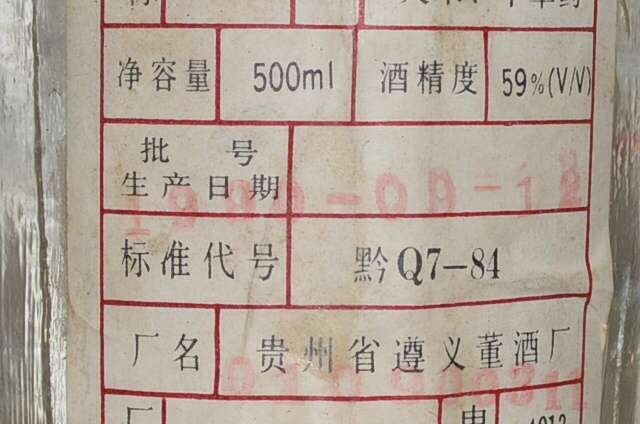 净容量 500ml 酒精度 59%(V/V)
批号
生产日期
标准代号 黔Q7-84
厂名 贵州省遵义董酒厂
厂 电